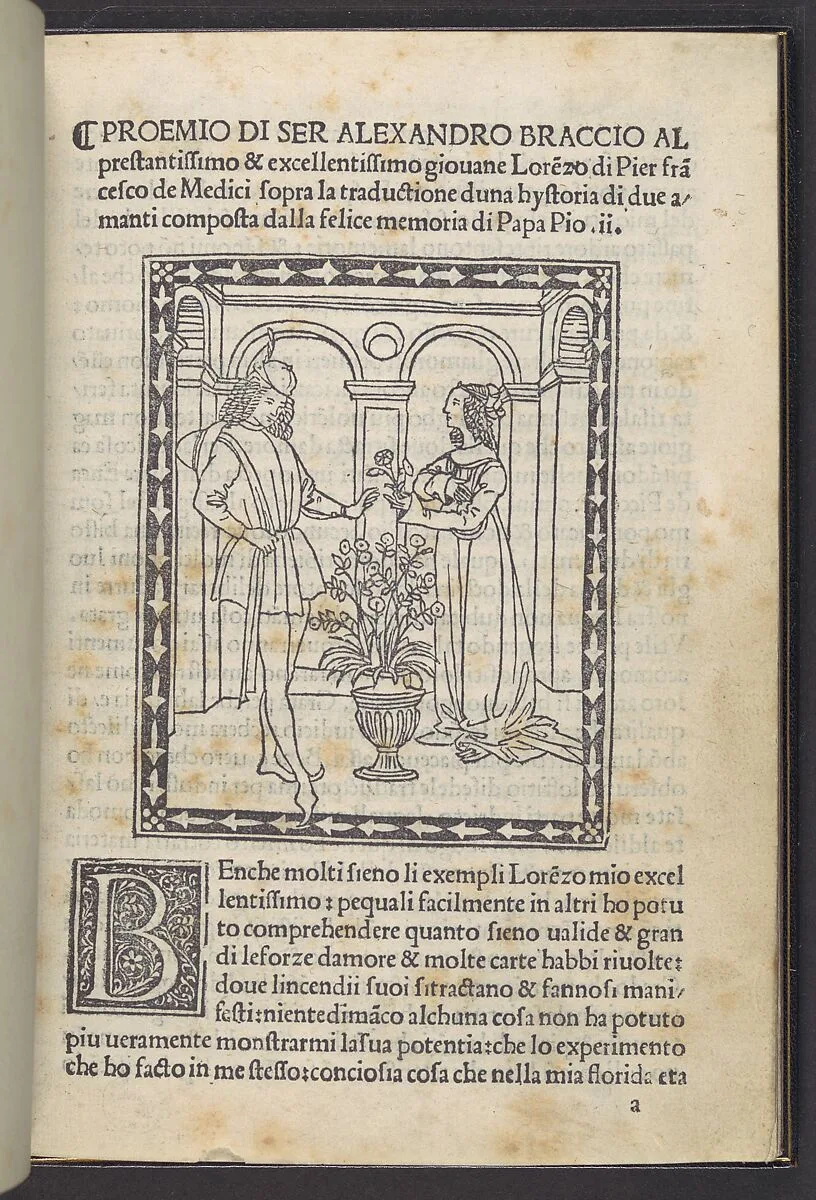 ⸿ PROEMIO DI SER ALEXANDRO BRACCIO AL
preſtantiſſimo & excellentiſſimo giouane Lorēzo di Pier frā
ceſco de Medici ſopra la traductione duna hyſtoria di due a/
manti compoſta dalla felice memoria di Papa Pio .ii.
BEnche molti ſieno li exempli Lorēzo mio excel
lentiſſimo : pequali facilmente in altri ho potu
to comprehendere quanto ſieno ualide & gran
di leforze damore & molte carte habbi riuolte:
doue lincendii ſuoi ſitractano & fannoſi mani/
feſti:niente dimāco alchuna coſa non ha potuto
piu ueramente monſtrarmi laſua potentia:che lo experimento
che ho facto in me ſteſſo:concioſia coſa che nella mia florida eta
a